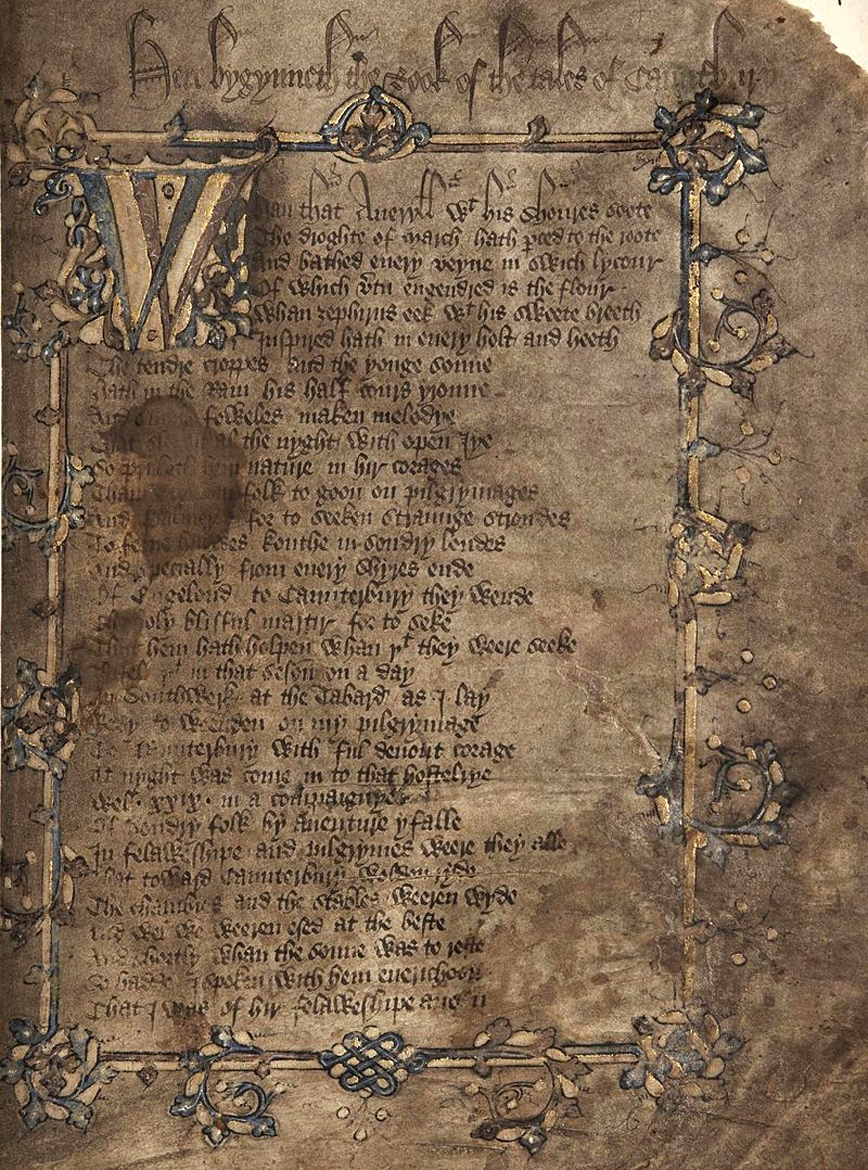 Here bygynneth the Book of the tales of Caunterbury
Whan that Aueryll wt his shoures soote
The droghte of march hath pced to the roote
And bathed euery veyne in swich lycour
Of which vtu engendred is the flour
Whan zephirus eek wt his sweete breeth
Inspired hath in euery holt and heeth
The tendre croppes and the yonge sonne
Hath in the Ram his half cours yronne
And foweles maken melodye
That al the nyght with open Iye
So priketh hem nature in hir corages
Thanne folk to goon on pilgrymages
And Palmeres for to seeken straunge strondes
To ferne halwes kouthe in sondry londes
And specially from euery shyres ende
Of Engelond to Caunterbury they wende
The holy blisful martir for to seke
That hem hath holpen whan þt they weere seeke
Bifel þt in that seson on a day
In Southwerk at the Tabard as I lay
Redy to weenden on my pilgrymage
To Caunterbury with ful deuout corage
At nyght was come in to that hostelrye
Wel xxix in a compaignye
Of sondry folk by auenture yfalle
In felaweshipe and pilgrymes weere they alle
That toward Caunterbury wolden ryde
The chambres and the stables weeren wyde
And wel we weeren esed at the beste
And shortly whan the sonne was to reste
So hadde I spoken with hem euerichoon
That I was of hir felaweshipe anon